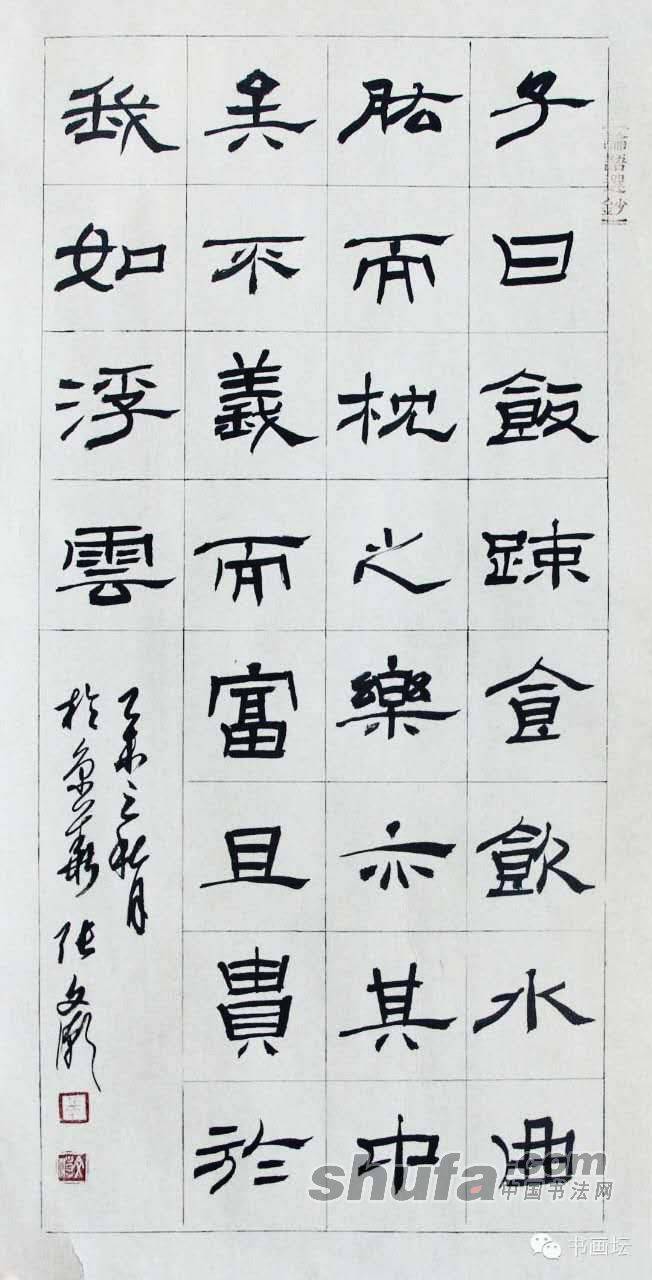 論語選鈔
子曰飯踈食飲水曲
肱而枕之樂亦其中
矣不義而富且貴於
我如浮雲
乙未之秋月
於京華 张文
shufa.com
中国书法网
书画坛